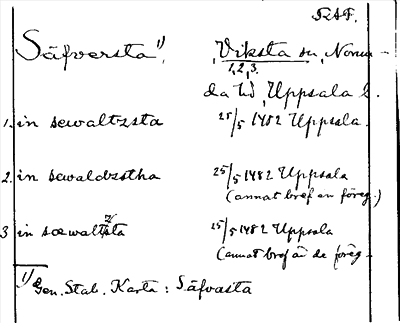 R.A.F.
Säfversta 1), Viksta sn, Norun-
1, 2, 3.
da hd, Uppsala l.
1. in sewaltzsta 25/5 1482 Uppsala.
2. in sewaldzstha 25/5 1482 Uppsala
(annat bref än föreg.)
3 in sæwaltzsta 25/5 1482 Uppsala
(annat bref än de föreg.
1) Gen. Stab. Karta: Säfvasta